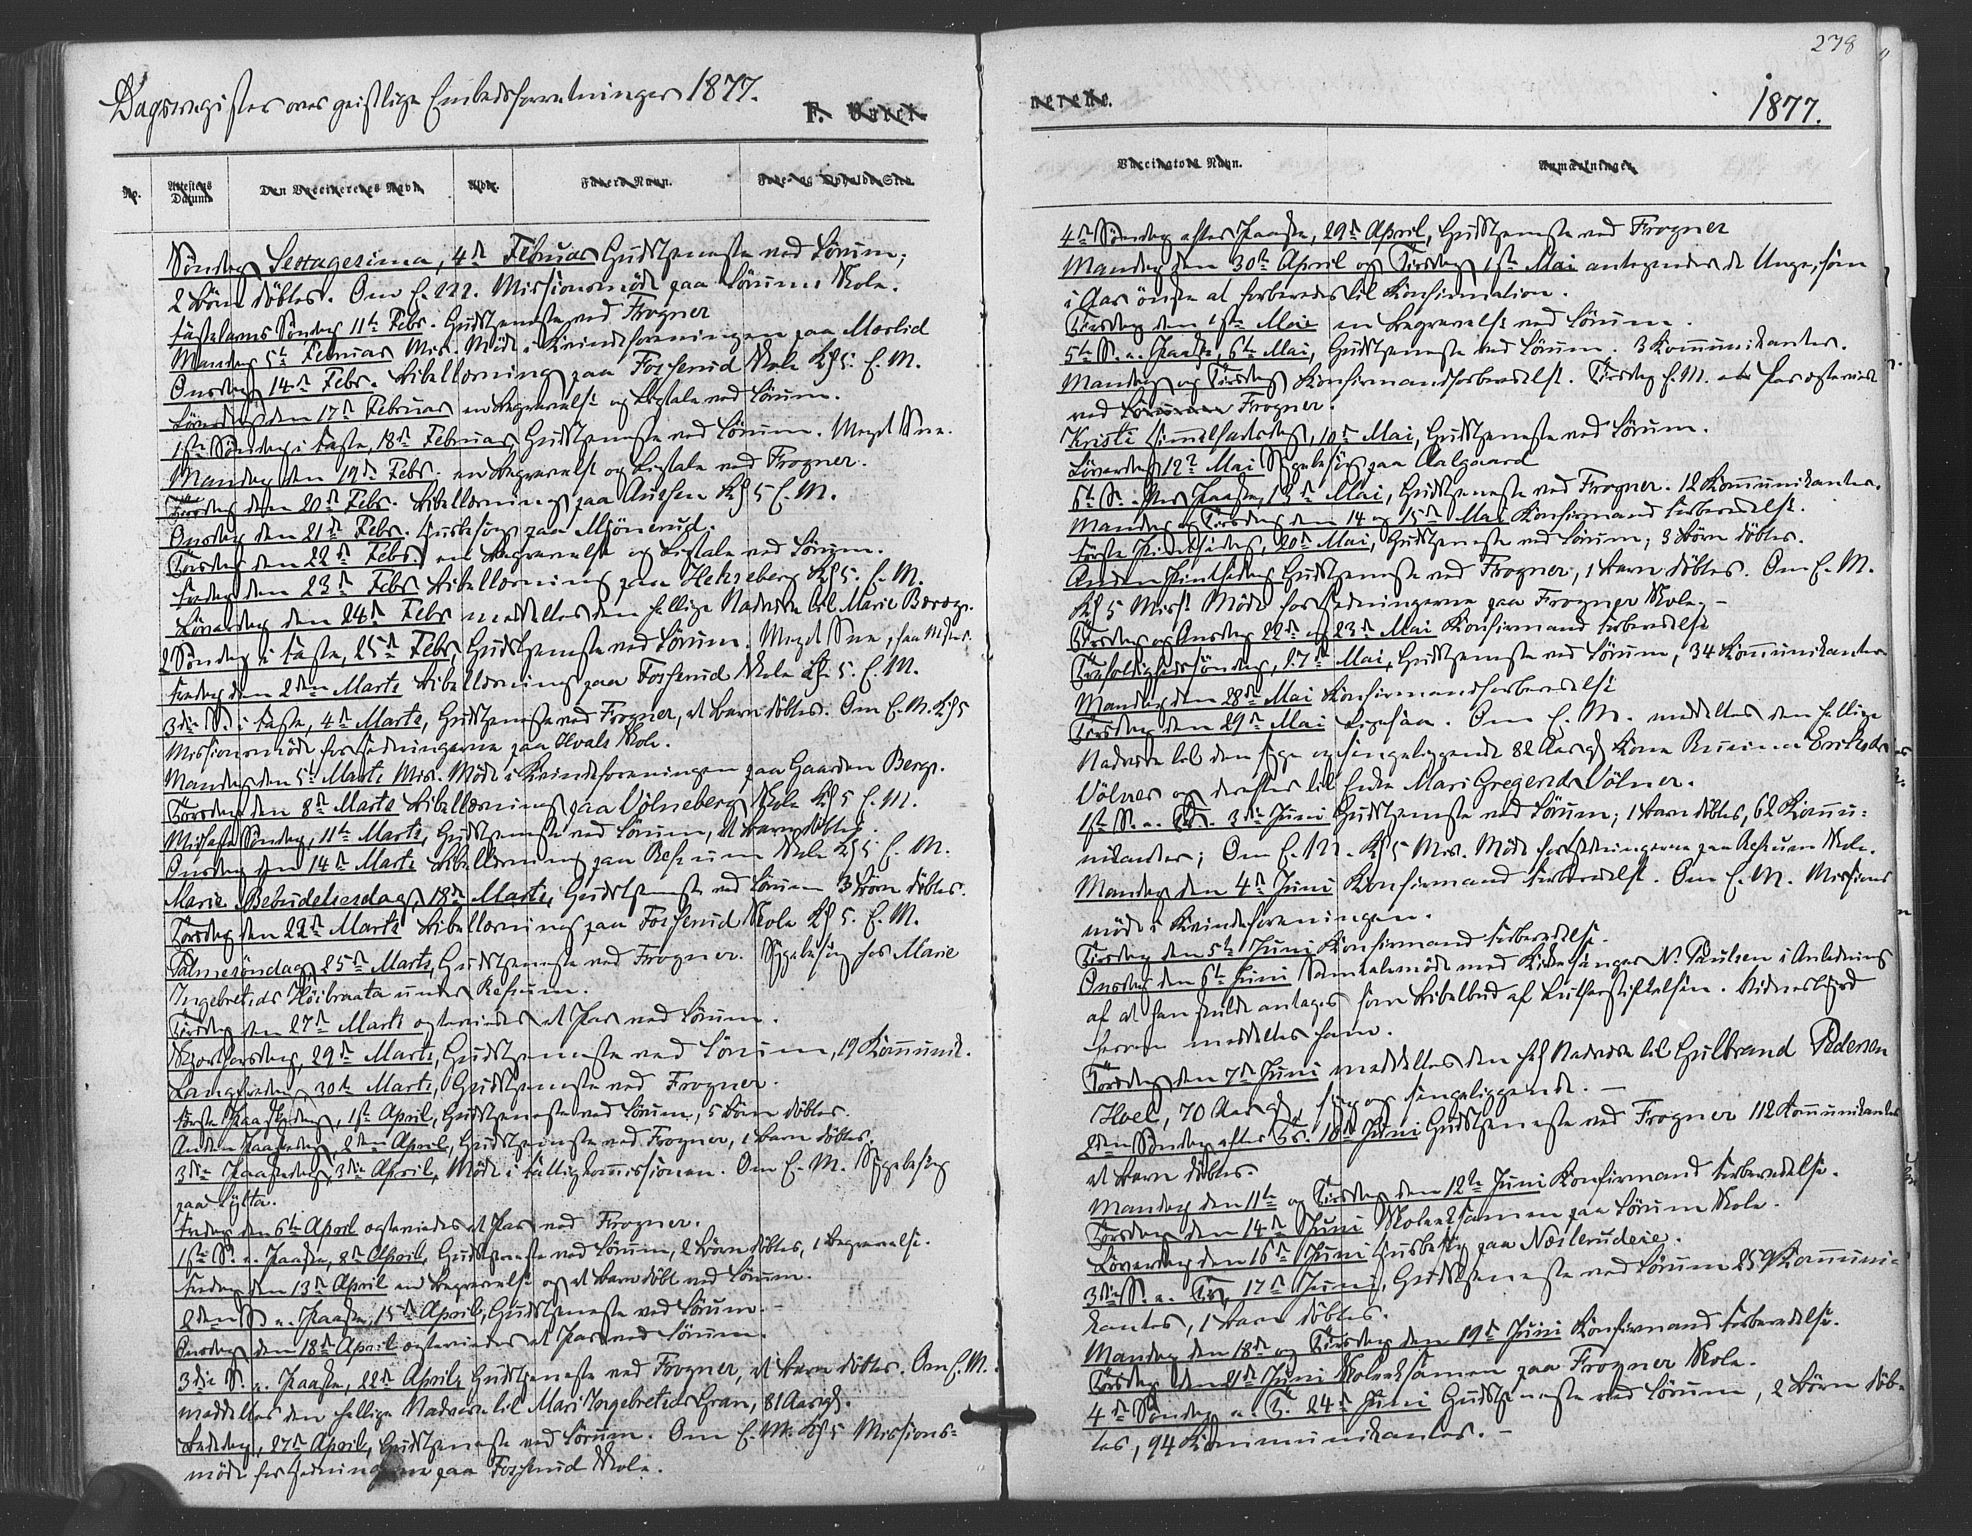 Dagsregister over geistlige Embedsforretninger 1877.
F. Vacci-
No.
Attestens Datum.
Den Vaccineredes Navn.
Alder.
Faders Navn.
Føde- og Opholds-Sted.
Søndag Sexagesima, 4de Februar Gudstjeneste ved Sörum,
2 Börn döbtes. Om E. M. Missionsmöde paa Sörum Skole.
Fastelavns Söndag 11te Febr. Gudstjeneste ved Frogner
Mandag 5te Februar Mis. Möde i Kvindeforeningen paa Mœlid
Onsdag 14de Febr. Bibellæsning paa Fosserud Skole Kl 5. E. M.
Löverdag den 17de Februar en Begravelse og Ligtale ved Sörum.
1ste Söndag i Faste, 18de Februar Gudstjeneste ved Sörum. Meget Sne.
Mandag den 19de Febr. en Begravelse og Ligtale ved Frogner.
Tirsdag den 20de Febr. Bibellæsning paa Kl 5 E. M.
Onsdag den 21de Febr. Husbesög paa Mjönerud.
Torsdag den 22de Febr. en Begravelse og Ligtale ved Sörum.
Fredag den 23de Febr Bibellæsning paa Hexeberg Kl 5. E. M.
Löverdag den 24de Febr meddeltes den hellige Nadvere til Marie Berger.
2 Söndag i Faste, 25de Febr, Gudstjeneste ved Sörum. Meget Sne,
Fredag den 2den Marts Bibellæsning paa Fosserud Skole Kl. 5. E. M.
3die S. i Faste, 4de Marts, Gudstjeneste ved Frogner, et Barn döbtes. Om E. M. Kl 5
Missionsmöde for Hedningerne paa Hvals Skole.
Mandag den 5te Marts Mis. Möde i Kvindeforeningen paa Gaarden Berger.
Torsdag den 8de Marts Bibellæsning paa Völneberg Skole Kl 5 E. M.
Midfaste Söndag, 11te Marts, Gudstjeneste ved Sörum, et Barn döbtes.
Onsdag den 14de Marts Bibellæsning paa Refsum Skole Kl 5 E. M.
Marie Bebudelsesdag, 18de Marts, Gudstjeneste ved Sörum 3 Börn döbtes.
Torsdag den 22de Marts Bibellæsning paa Fosserud Skole Kl 5. E. M.
Palmesöndag, 25de Marts, Gudstjeneste ved Frogner. Sygebesög hos Marie
Ingebretsds Höibraata under Refsum.
Tirsdag den 27de Marts ægteviedes et Par ved Sörum.
Skjærtorsdag, 29de Marts, Gudstjeneste ved Sörum, 19 Kommunik.
Langfredag, 30te Marts, Gudstjeneste ved Frogner.
Förste Paaskedag, 1ste April, Gudstjeneste ved Sörum, 5 Börn döbtes.
Anden Paaskedag, 2den April, Gudstjeneste ved Frogner, 1 Barn döbtes.
3die Paaskedag, 3die April, Möde i Fattigkommissionen. Om E. M. Sygebesög
paa Sylta.
Fredag den 6te April ægteviedes et Par ved Frogner.
1ste S. e. Paaske, 8de April, Gudstjeneste ved Sörum, 2 Börn döbtes, 1 Begravelse.
Fredag den 13de April en Begravelse og et Barn döbt ved Sörum.
2den S. e. Paaske, 15de April, Gudstjeneste ved Sörum.
Onsdag den 18de April ægteviedes et Par ved Sörum.
3die S. e. Paaske, 22de April, Gudstjeneste ved Frogner, et Barn döbtes. Om E. M.
meddeltes den hellige Nadvere til Mari Ingebretsds Gran, 81 Aar gl.
Bededag, 27de April, Gudstjeneste ved Sörum. Om E. M. Kl 5 Missions-
möde for Hedningerne paa Fosserud Skole.
278
nerede.
1877.
Vaccinators Navn.
Anmærkninger.
4de Söndag efter Paaske, 29de April, Gudstjeneste ved Frogner
Mandag den 30te April og Tirsdag 1ste Mai antegnedes de Unge, som
i Aar önske at forberedes til Konfirmation.
Tirsdag den 1ste Mai en Begravelse ved Sörum.
5te S. e. Paaske, 6te Mai, Gudstjeneste ved Sörum. 3 Kommunikanter.
Mandag og Tirsdag Konfirmandforberedelse. Tirsdag E. M. et Par ægteviet
ved Frogner.
Kristi Himmelfartsdag, 10de Mai, Gudstjeneste ved Sörum.
Löverdag 12te Mai Sygebesög paa Aalgaard
6te S. efter Paaske, 13de Mai, Gudstjeneste ved Frogner. 12 Kommunikanter.
Mandag og Tirsdag den 14 og 15de Mai Konfirmand Forberedelse.
Förste Pintsedag, 20de Mai, Gudstjeneste ved Sörum, 3 Börn döbtes.
Anden Pintsedag Gudstjeneste ved Frogner, 1 Barn döbtes. Om E. M.
Kl 5 Miss. Möde for Hedningerne paa Frogner Skole. –
Tirsdag og Onsdag 22de og 23de Mai Konfirmand Forberedelse
Trefoldighedssöndag, 27de Mai, Gudstjeneste ved Sörum, 34 Kommunikanter
Mandag den 28de Mai Konfirmandforberedelse
Tirsdag den 29de Mai Ligesaa. Om E. M. meddeltes den hellige
Nadvere til den syge og sengeliggende 82 Aar gl Kone Eriksds
Völner og derefter til Enke Mari Gregersds Völner.
1ste S. e. Tr. 3die Juni Gudstjeneste ved Sörum; 1 Barn döbtes, 62 Kommu-
nikanter; Om E. M. Kl 5 Mis. Möde for Hedningerne paa Refsum Skole.
Mandag den 4de Juni Konfirmand Forberedelse. Om E. M. Missions
möde i Kvindeforeningen.
Tirsdag den 5te Juni Konfirmand Forberedelse.
Onsdag den 6te Juni Samtalemöde med Kirkesanger N. Paulsen i Anledning
af at han skulde antages som Bibelbud af Lutherstiftelsen. Vidnesbyrd
herom meddeltes ham.
Torsdag den 7de Juni meddeltes den hel Nadvere til Gulbrand Pedersen
Hoel, 70 Aar gl, syg og sengeliggende. –
2den Söndag efter Tr. 10de Juni Gudstjeneste ved Frogner 112 Kommunikanter
et Barn döbtes.
Mandag den 11te og Tirsdag den 12te Juni Konfirmand Forberedelse.
Torsdag den 14de Juni Skoleeksamen paa Sörum Skole.
Löverdag den 16de Juni Husbesög paa Næilerudeie.
3die S. e. Tr, 17de Juni, Gudstjeneste ved Sörum 259 Kommuni-
kanter, 1 Barn döbtes.
Mandag den 18de og Tirsdag den 19de Juni Konfirmand Forberedelse.
Torsdag den 21de Juni Skoleeksamen paa Frogner Skole.
4de Söndag e. T. 24de Juni Gudstjeneste ved Sörum, 2 Börn döb-
tes, 94 Kommunikanter. –